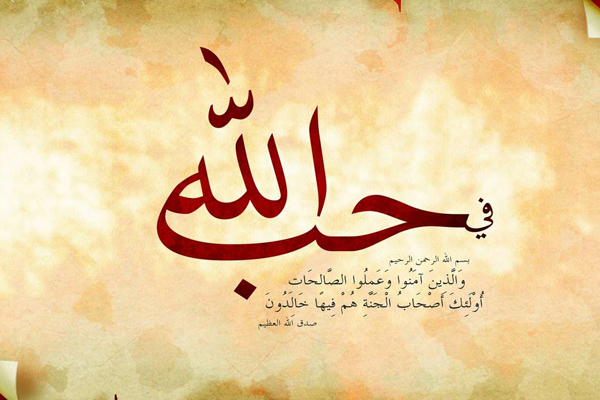 في حب الله
بسم الله الرحمن الرحيم
وَالَّذِينَ آمَنُوا وَعَمِلُوا الصَّالِحَاتِ
أُوْلَئِكَ أَصْحَابُ الْجَنَّةِ هُمْ فِيهَا خَالِدُونَ
صدق الله العظيم